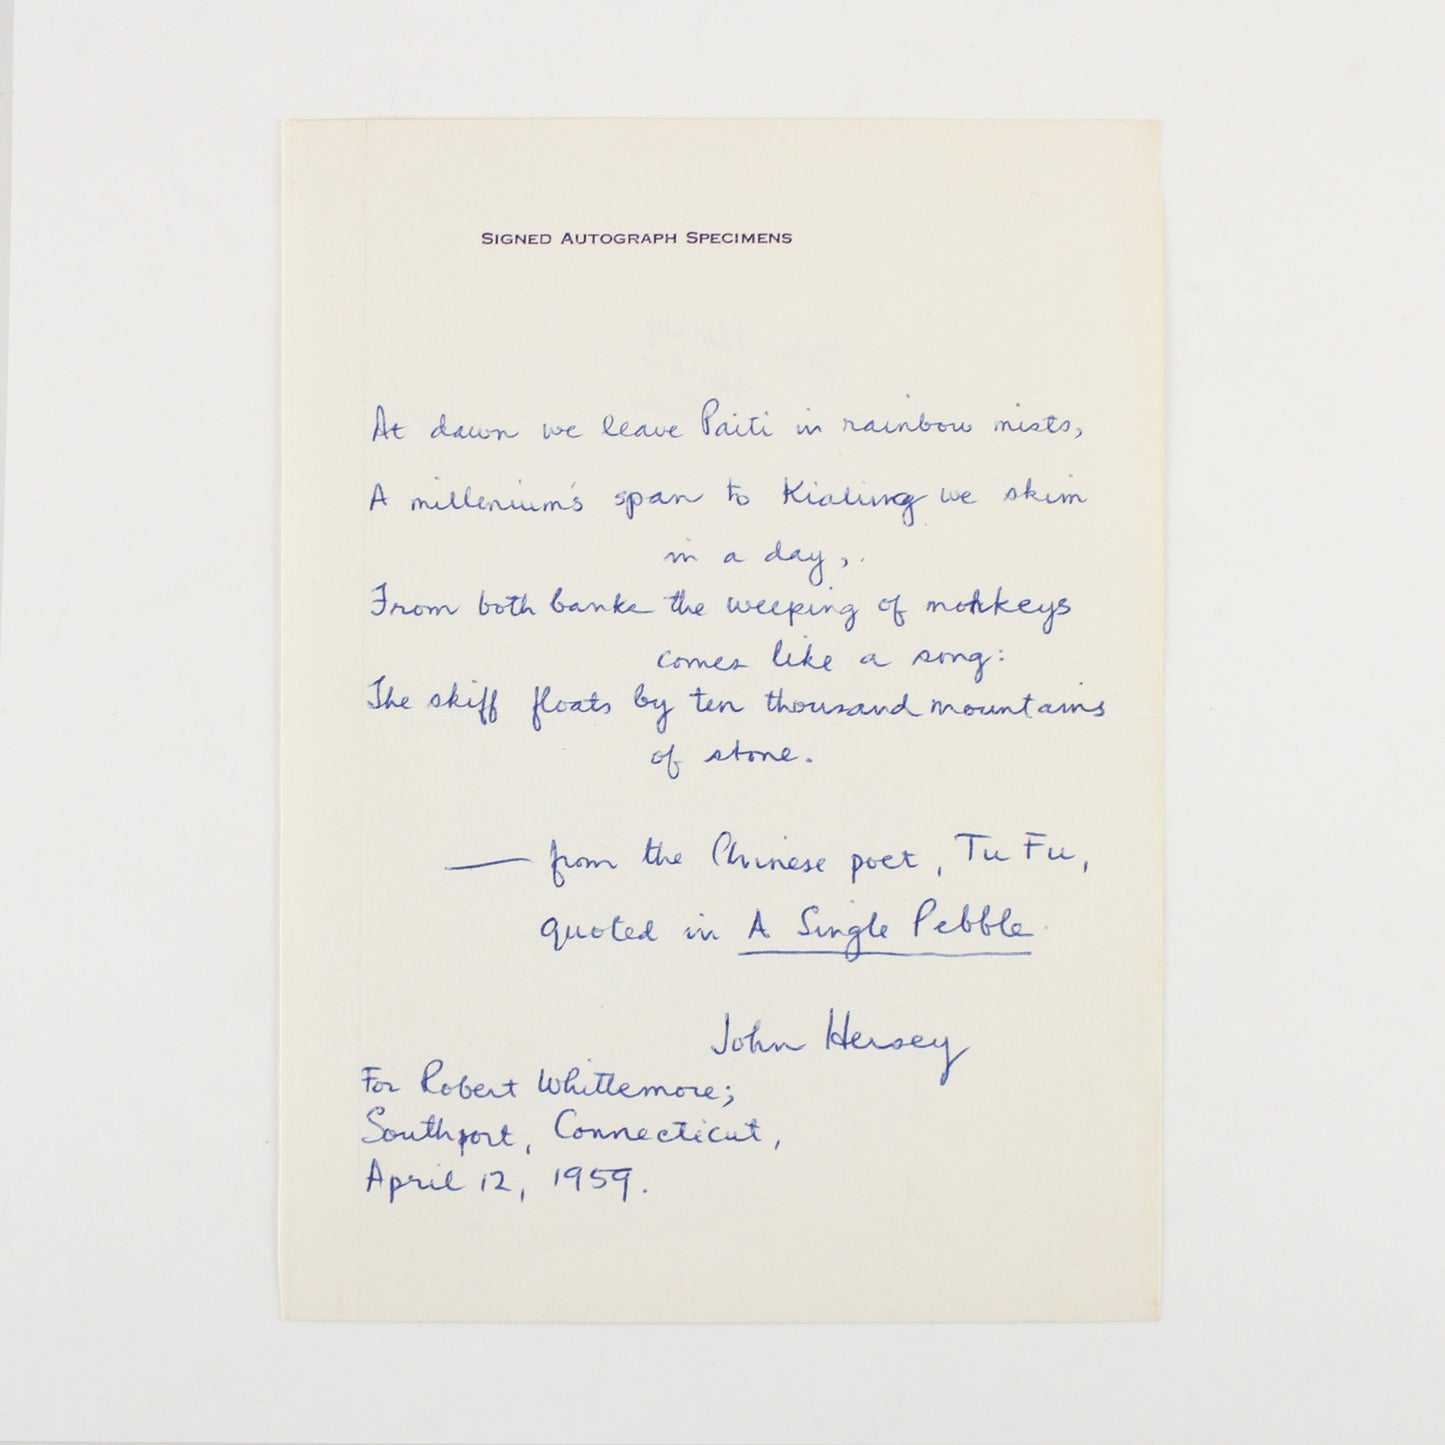 SIGNED AUTOGRAPH SPECIMENS
At dawn we leave Paiti in rainbow mists,
A millenium's span to Kialing we skim
in a day,
From both banks the weeping of monkeys
comes like a song:
The skiff floats by ten thousand mountains
of stone.
— from the Chinese poet, Tu Fu,
quoted in A Single Pebble
John Hersey
For Robert Whittemore;
Southport, Connecticut,
April 12, 1959.